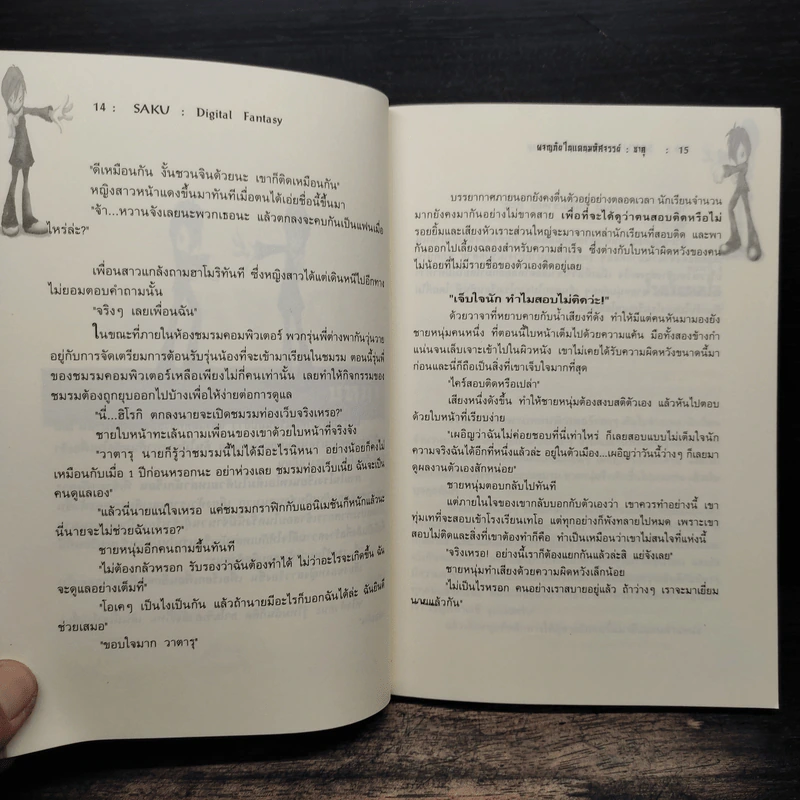 14 : SAKU : Digital Fantasy
"ดีเหมือนกัน งั้นชวนจินด้วยนะ เขาก็ติดเหมือนกัน"
หญิงสาวหน้าแดงขึ้นมาทันทีเมื่อตนได้เอ่ยชื่อนี้ขึ้นมา
"จ้า...หวานจังเลยนะพวกเธอนะ แล้วตกลงจะคบกันเป็นแฟนเมื่อ
ไหร่ล่ะ?"
เพื่อนสาวแกล้งถามฮาโมริทันที ซึ่งหญิงสาวได้แต่เดินหนีไปอีกทาง
ไม่ยอมตอบคำถามนั้น
"จริงๆ เลยเพื่อนฉัน"
ในขณะที่ภายในห้องชมรมคอมพิวเตอร์ พวกรุ่นพี่ต่างพากันวุ่นวาย
อยู่กับการจัดเตรียมการต้อนรับรุ่นน้องที่จะเข้ามาเรียนในชมรม ตอนนี้รุ่นพี่
ของชมรมคอมพิวเตอร์เหลือเพียงไม่กี่คนเท่านั้น เลยทำให้กิจกรรมของ
ชมรมต้องถูกยุบออกไปบ้างเพื่อให้ง่ายต่อการดูแล
"นี่...ฮิโรกิ ตกลงนายจะเปิดชมรมท่องเว็บจริงเหรอ?"
ชายใบหน้าทะเล้นถามเพื่อนของเขาด้วยใบหน้าที่จริงจัง
"วาตารุ นายก็รู้ว่าชมรมนี้ไม่ได้มีอะไรนิหนา อย่างน้อยก็คงไม่
เหมือนกับเมื่อ 1 ปีก่อนหรอกนะ อย่าห่วงเลย ชมรมท่องเว็บเนี่ย ฉันจะเป็น
คนดูแลเอง"
"แล้วนี่นายแน่ใจเหรอ แค่ชมรมกราฟิกกับแอนิเมชันก็หนักแล้วนะ
นี่นายจะไม่ช่วยฉันเหรอ?"
ชายหนุ่มอีกคนถามขึ้นทันที
"ไม่ต้องกลัวหรอก รับรองว่าฉันต้องทำได้ ไม่ว่าอะไรจะเกิดขึ้น ฉัน
จะดูแลอย่างเต็มที่"
"โอเคๆ เป็นไงเป็นกัน แล้วถ้านายมีอะไรก็บอกฉันได้ล่ะ ฉันยินดี
ช่วยเสมอ"
"ขอบใจมาก วาตารุ"
ผจญภัยไกแดนมหัศจรรย์ : ซากุ : 15
บรรยากาศภายนอกยังคงตื่นตัวอยู่อย่างตลอดเวลา นักเรียนจำนวน
มากยังคงมากันอย่างไม่ขาดสาย เพื่อที่จะได้ดูว่าตนสอบติดหรือไม่
รอยยิ้มและเสียงหัวเราะส่วนใหญ่จะมาจากเหล่านักเรียนที่สอบติด และพา
กันออกไปเลี้ยงฉลองสำหรับความสำเร็จ ซึ่งต่างกับใบหน้าผิดหวังของคน
ไม่น้อยที่ไม่มีรายชื่อของตัวเองติดอยู่เลย
"เจ็บใจนัก ทำไมสอบไม่ติดว่ะ!"
ด้วยวาจาที่หยาบคายกับน้ำเสียงที่ดัง ทำให้มีแต่คนหันมามองยัง
ชายหนุ่มคนหนึ่ง ที่ตอนนี้ใบหน้าเต็มไปด้วยความแค้น มือทั้งสองข้างกำ
แน่นจนเล็บเจาะเข้าไปในผิวหนัง เขาไม่เคยได้รับความผิดหวังขนาดนี้มา
ก่อนและนี่ก็ถือเป็นสิ่งที่เขาเจ็บใจมากที่สุด
"ไคร์สอบติดหรือเปล่า"
เสียงหนึ่งดังขึ้น ทำให้ชายหนุ่มต้องสงบสติตัวเอง แล้วหันไปตอบ
ด้วยใบหน้าที่เรียบง่าย
"เผอิญว่าฉันไม่ค่อยชอบที่นี่เท่าไหร่ ก็เลยสอบแบบไม่เต็มใจนัก
ความจริงฉันได้อีกที่หนึ่งแล้วล่ะ อยู่ในตัวเมือง...เผอิญว่าวันนี้ว่างๆ ก็เลยมา
ดูผลงานตัวเองสักหน่อย"
ชายหนุ่มตอบกลับไปทันที
แต่ภายในใจของเขากลับบอกกับตัวเองว่า เขาควรทำอย่างนี้ เขา
ทุ่มเทที่จะสอบเข้าโรงเรียนเทโอ แต่ทุกอย่างก็พังทลายไปหมด เพราะเขา
สอบไม่ติดและสิ่งที่เขาต้องทำก็คือ ทำเป็นเหมือนว่าเขาไม่สนใจที่แห่งนี้
"จริงเหรอ! อย่างนี้เราก็ต้องแยกกันแล้วล่ะสิ แย่จังเลย"
ชายหนุ่มทำเสียงด้วยความผิดหวังเล็กน้อย
"ไม่เป็นไรหรอก คนอย่างเราสบายอยู่แล้ว ถ้าว่างๆ เราจะมาเยี่ยม
นายแล้วกัน"